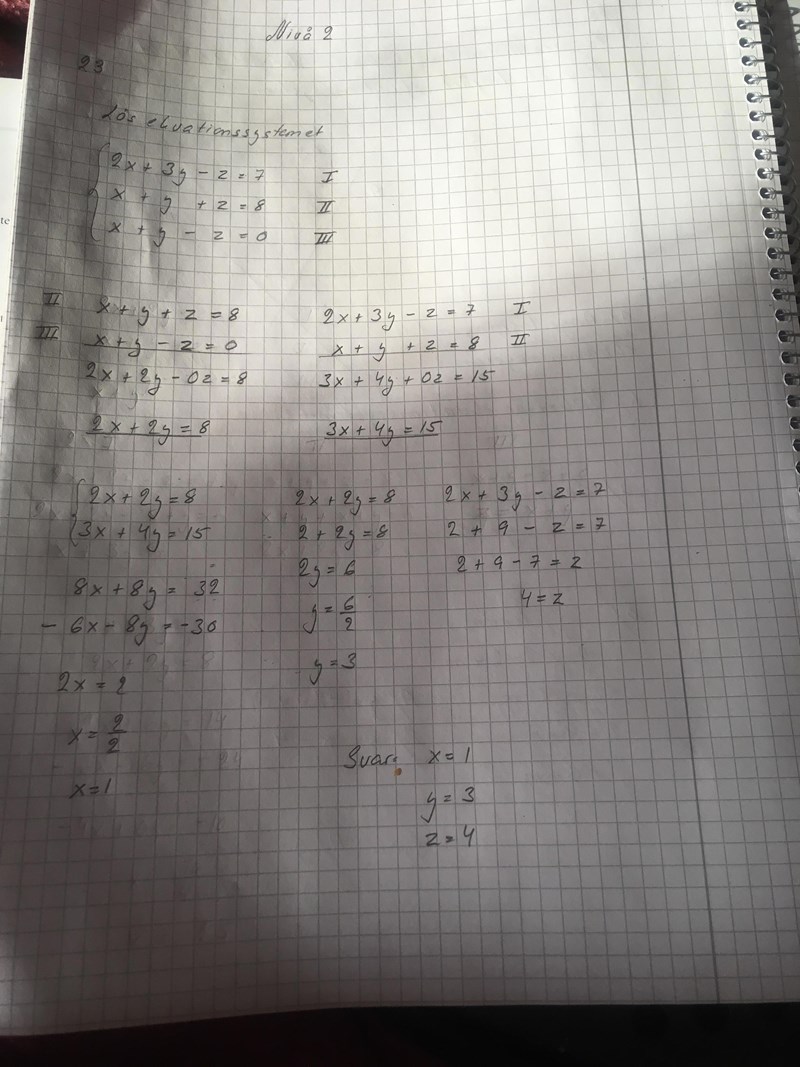 Nivå 2
23
Lös ekvationssystemet
2x + 3y - z = 7 I
x + y + z = 8 II
x + y - z = 0 III
II x + y + z = 8
III x + y - z = 0
2x + 2y - 0z = 8
2x + 2y = 8
2x + 3y - z = 7 I
x + y + z = 8 II
3x + 4y + 0z = 15
3x + 4y = 15
2x + 2y = 8
3x + 4y = 15
8x + 8y = 32
- 6x - 8y = -30
2x = 2
x = 2/2
x = 1
2x + 2y = 8
2 + 2y = 8
2y = 6
y = 6/2
y = 3
2x + 3y - z = 7
2 + 9 - z = 7
2 + 9 - 7 = z
4 = z
Svar: x = 1
y = 3
z = 4